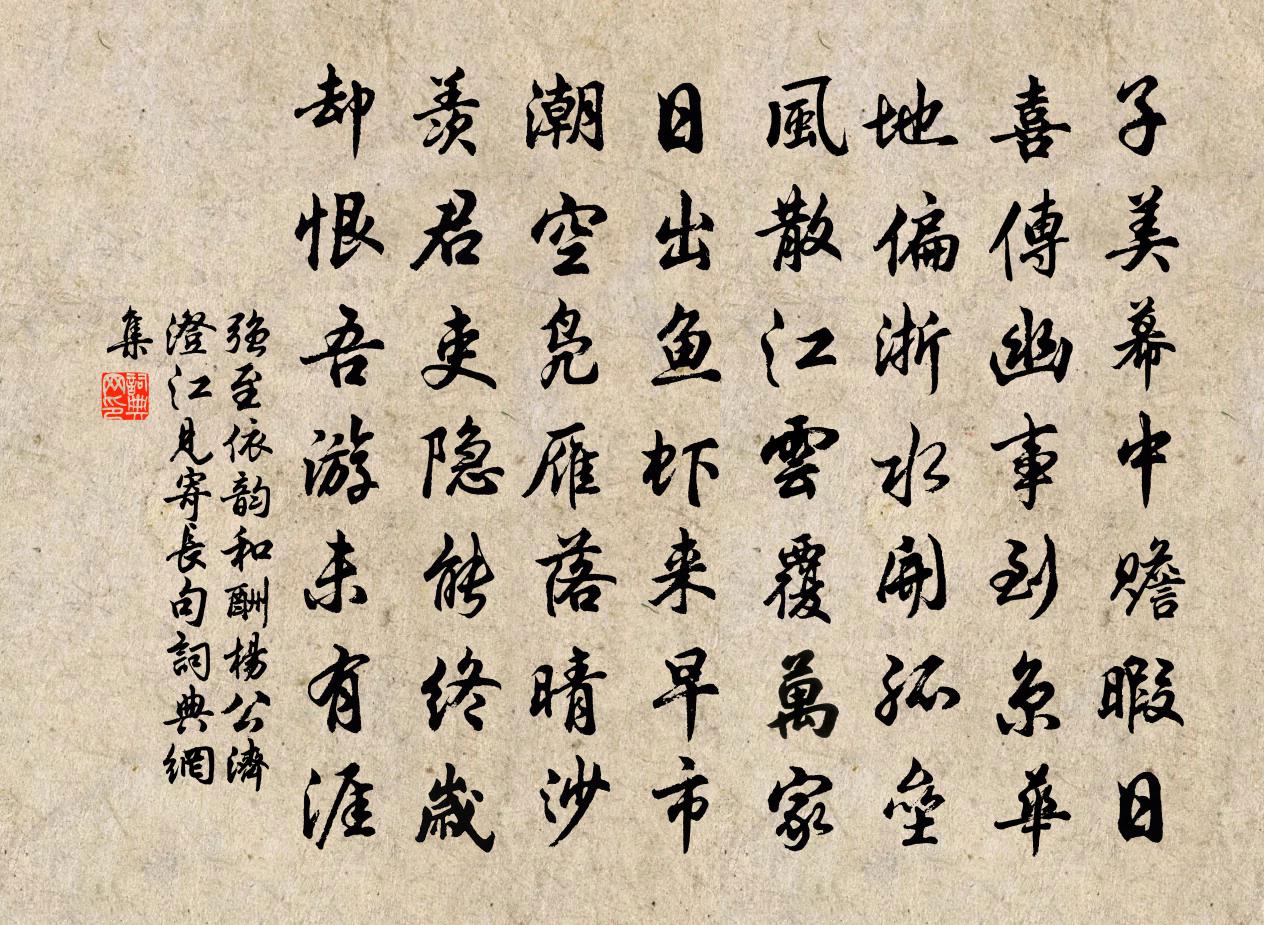 子美幕中贍暇日
喜傳幽事到京華
地偏浙水開孤壘
風散江雲覆萬家
日出鱼虾来早市
潮空凫雁落晴沙
羨君吏隐能终歲
却恨吾游未有涯
强至依韵和酬楊公濟
澄江見寄長句詞典網
集
詞典网印